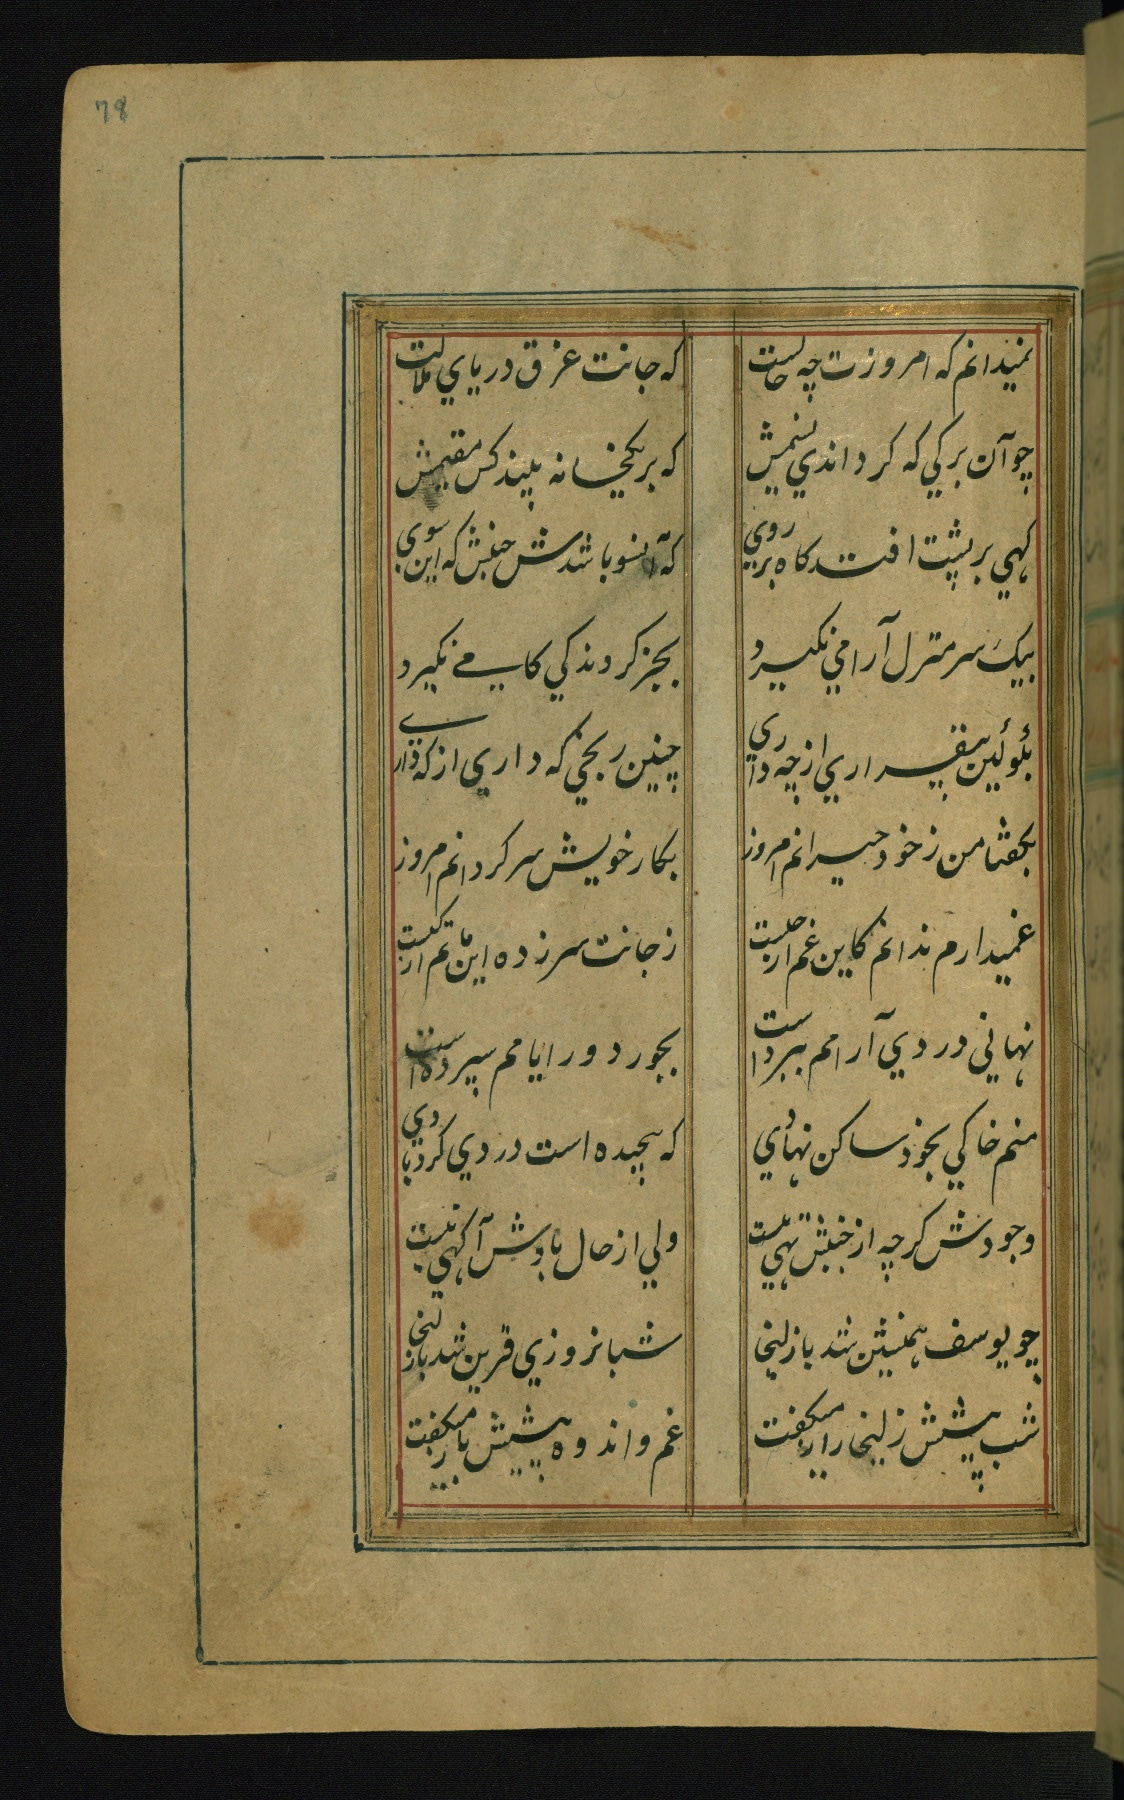 78
نمیدانم که امروزت چه حالست که جانت غرق دریای ملالت
چو آن برکی که کرداندی نسیمش که بر یکجا نه بیند کس مقیمش
کهی بر پشت افتد کاه بر روی که آنسو باشدش جنبش که این سوی
بیک سر منزل آرامی نکیرد بجز کردندکی کامی نکیرد
بکو کین بیقراری از چه داری چنین رنجی که داری از که داری
بکفتا من ز خود حیرانم امروز بکار خویش سرکردانم امروز
غمیدارم ندانم کاین غم از چیست ز جانت سر زده این ماتم از کیست
نهانی دردی آرامم ببردست بجور دور ایامم سپرده است
منم خاکی بخود ساکن نهادی که پیچیده است در وی کردبادی
وجودش کرچه از جنبش تهی نیست ولی از حال بادش آکهی نیست
چو یوسف همنشین شد با زلیخا شبانروزی قرین شد با زلیخا
شب پیشش زلیخا راز میکفت غم و اندوه پیشش باز میکفت